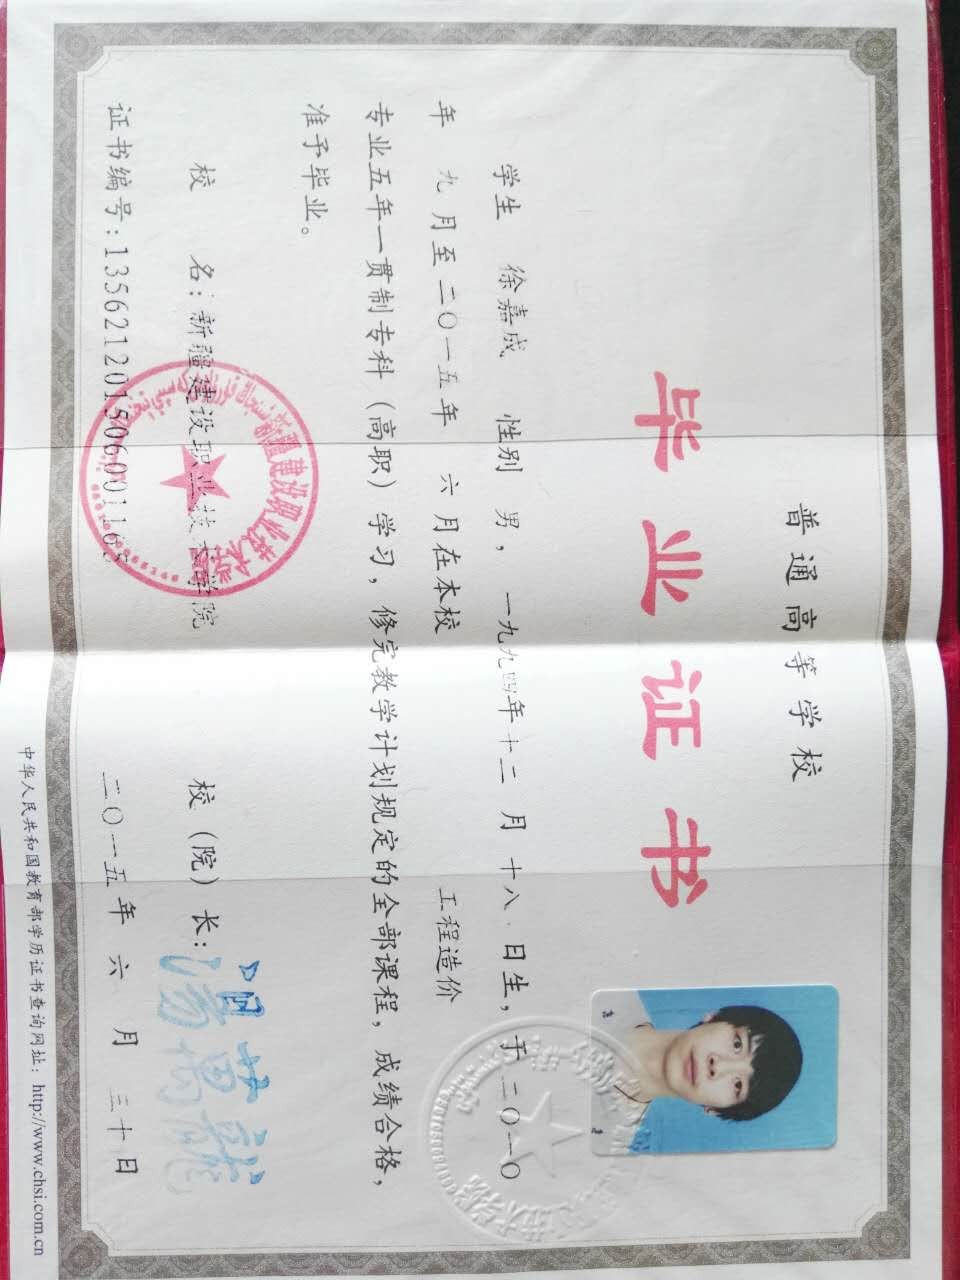 普通高等学校
毕业证书
学生 徐嘉成 性别 男，一九九四年十二月十八日生，于二〇一〇
年 九月至二〇一五年 六月在本校 工程造价
专业五年一贯制专科（高职）学习，修完教学计划规定的全部课程，成绩合格，
准予毕业。
校 名：新疆建设职业技术学院 校（院）长：
新疆建设职业技术学院
证书编号：135621201506001165 二〇一五年 六 月 三十日
中华人民共和国教育部学历证书查询网址：http://www.chsi.com.cn